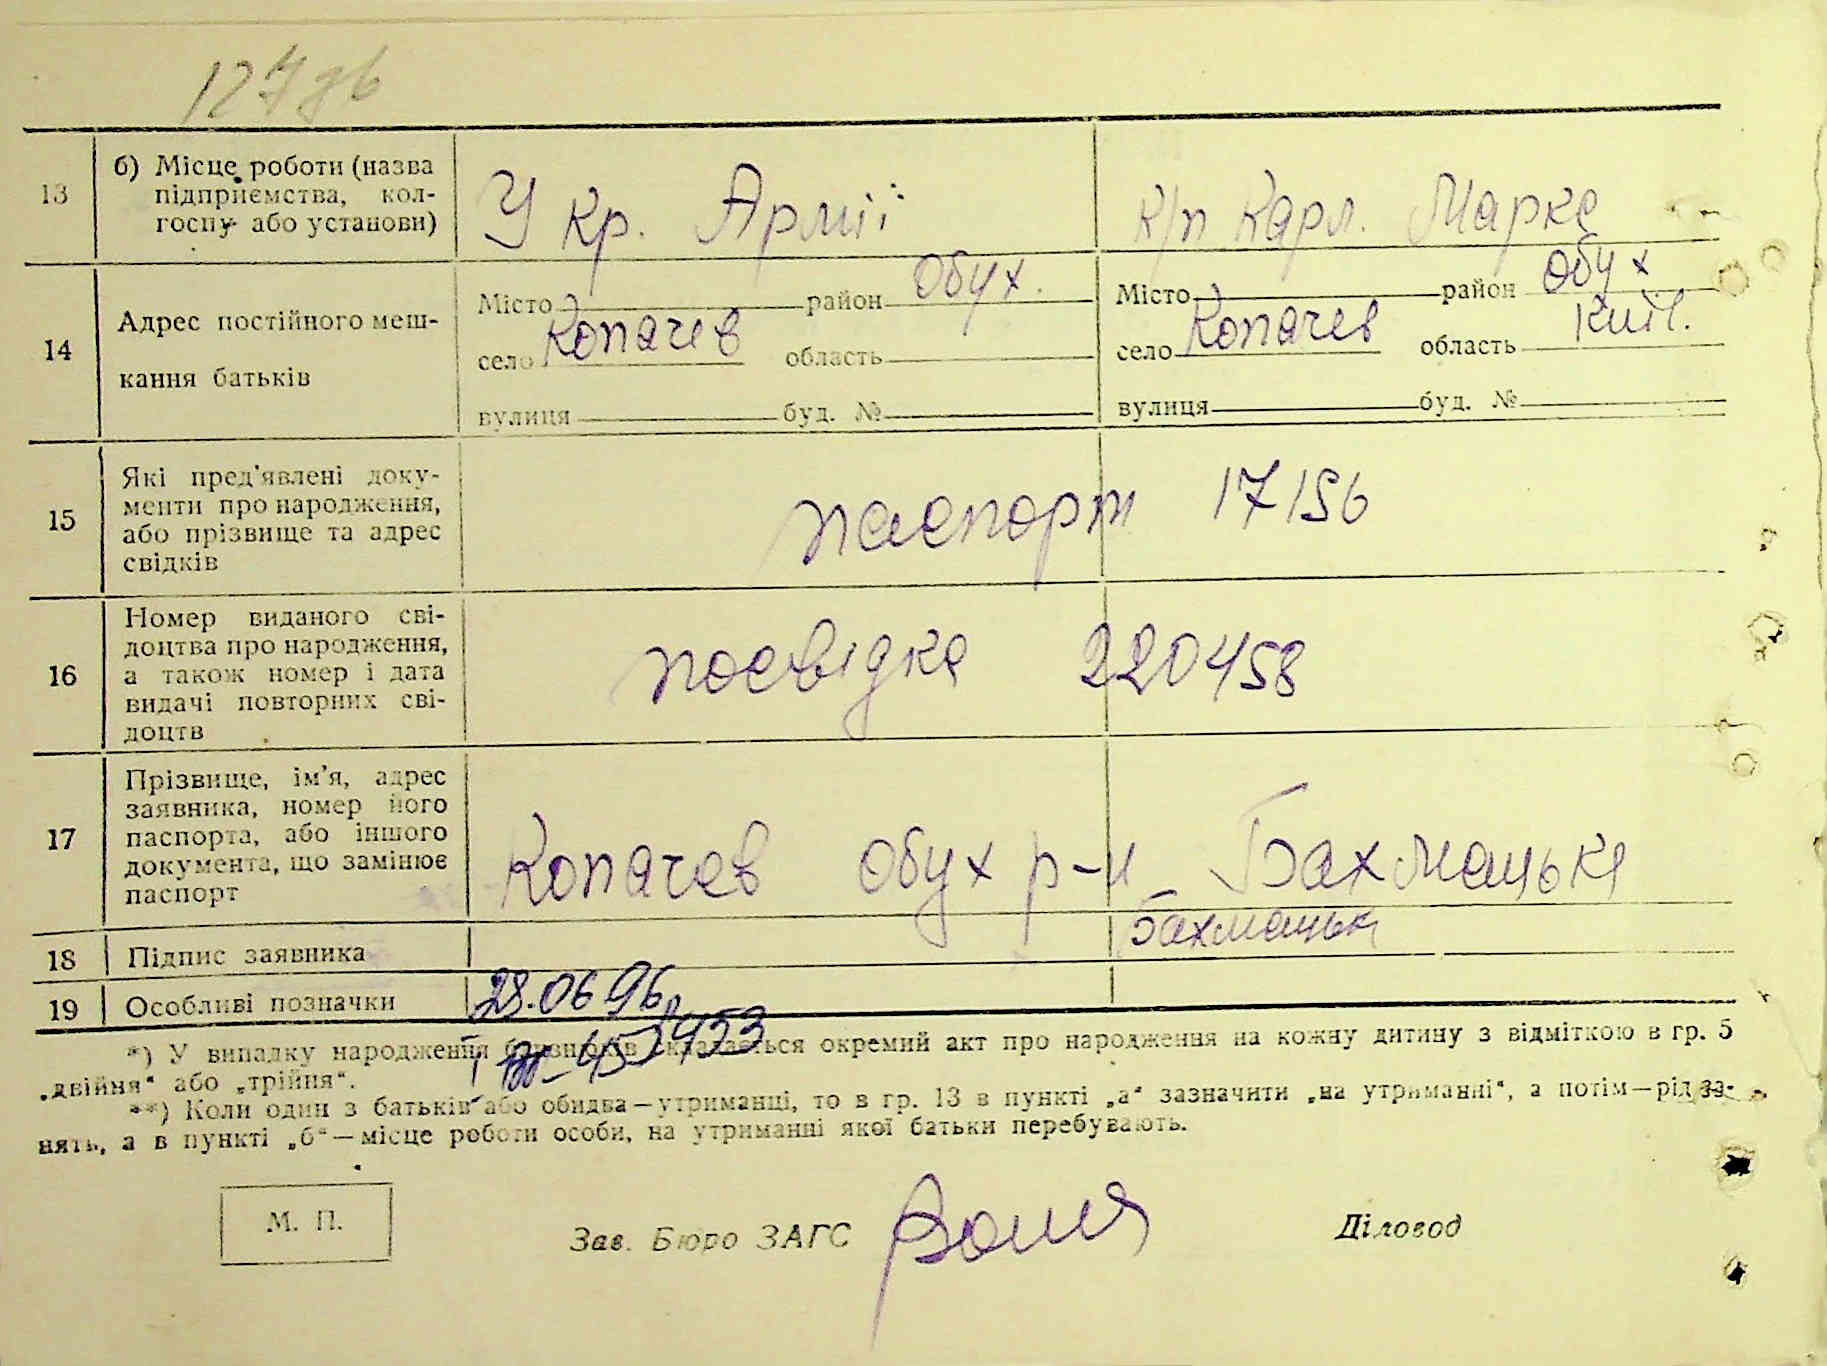 127 зв
13 б) Місце роботи (назва
підприємства, кол-
госпу або установи)
У Кр. Армії
к/п Карл. Маркс
14 Адрес постійного меш-
кання батьків
Місто район Обух.
село Копачев область
вулиця буд. №
Місто район Обух
село Копачев область Київ.
вулиця буд. №
15 Які пред'явлені доку-
менти про народження,
або прізвище та адрес
свідків
паспорт 17156
16 Номер виданого сві-
доцтва про народження,
а також номер і дата
видачі повторних сві-
доцтв
посвідка 220458
17 Прізвище, ім'я, адрес
заявника, номер його
паспорта, або іншого
документа, що замінює
паспорт
Копачев Обух р-н Бахмацька
18 Підпис заявника
Бахмацьк
19 Особливі позначки
28.06 96
*) У випадку народження близнюків складається окремий акт про народження на кожну дитину з відміткою в гр. 5
„двійня“ або „трійня“.
**) Коли один з батьків або обидва—утриманці, то в гр. 13 в пункті „а“ зазначити „на утриманні“, а потім—рід за-
нять, а в пункті „б“—місце роботи особи, на утриманні якої батьки перебувають.
М. П.
Зав. Бюро ЗАГС
Діловод